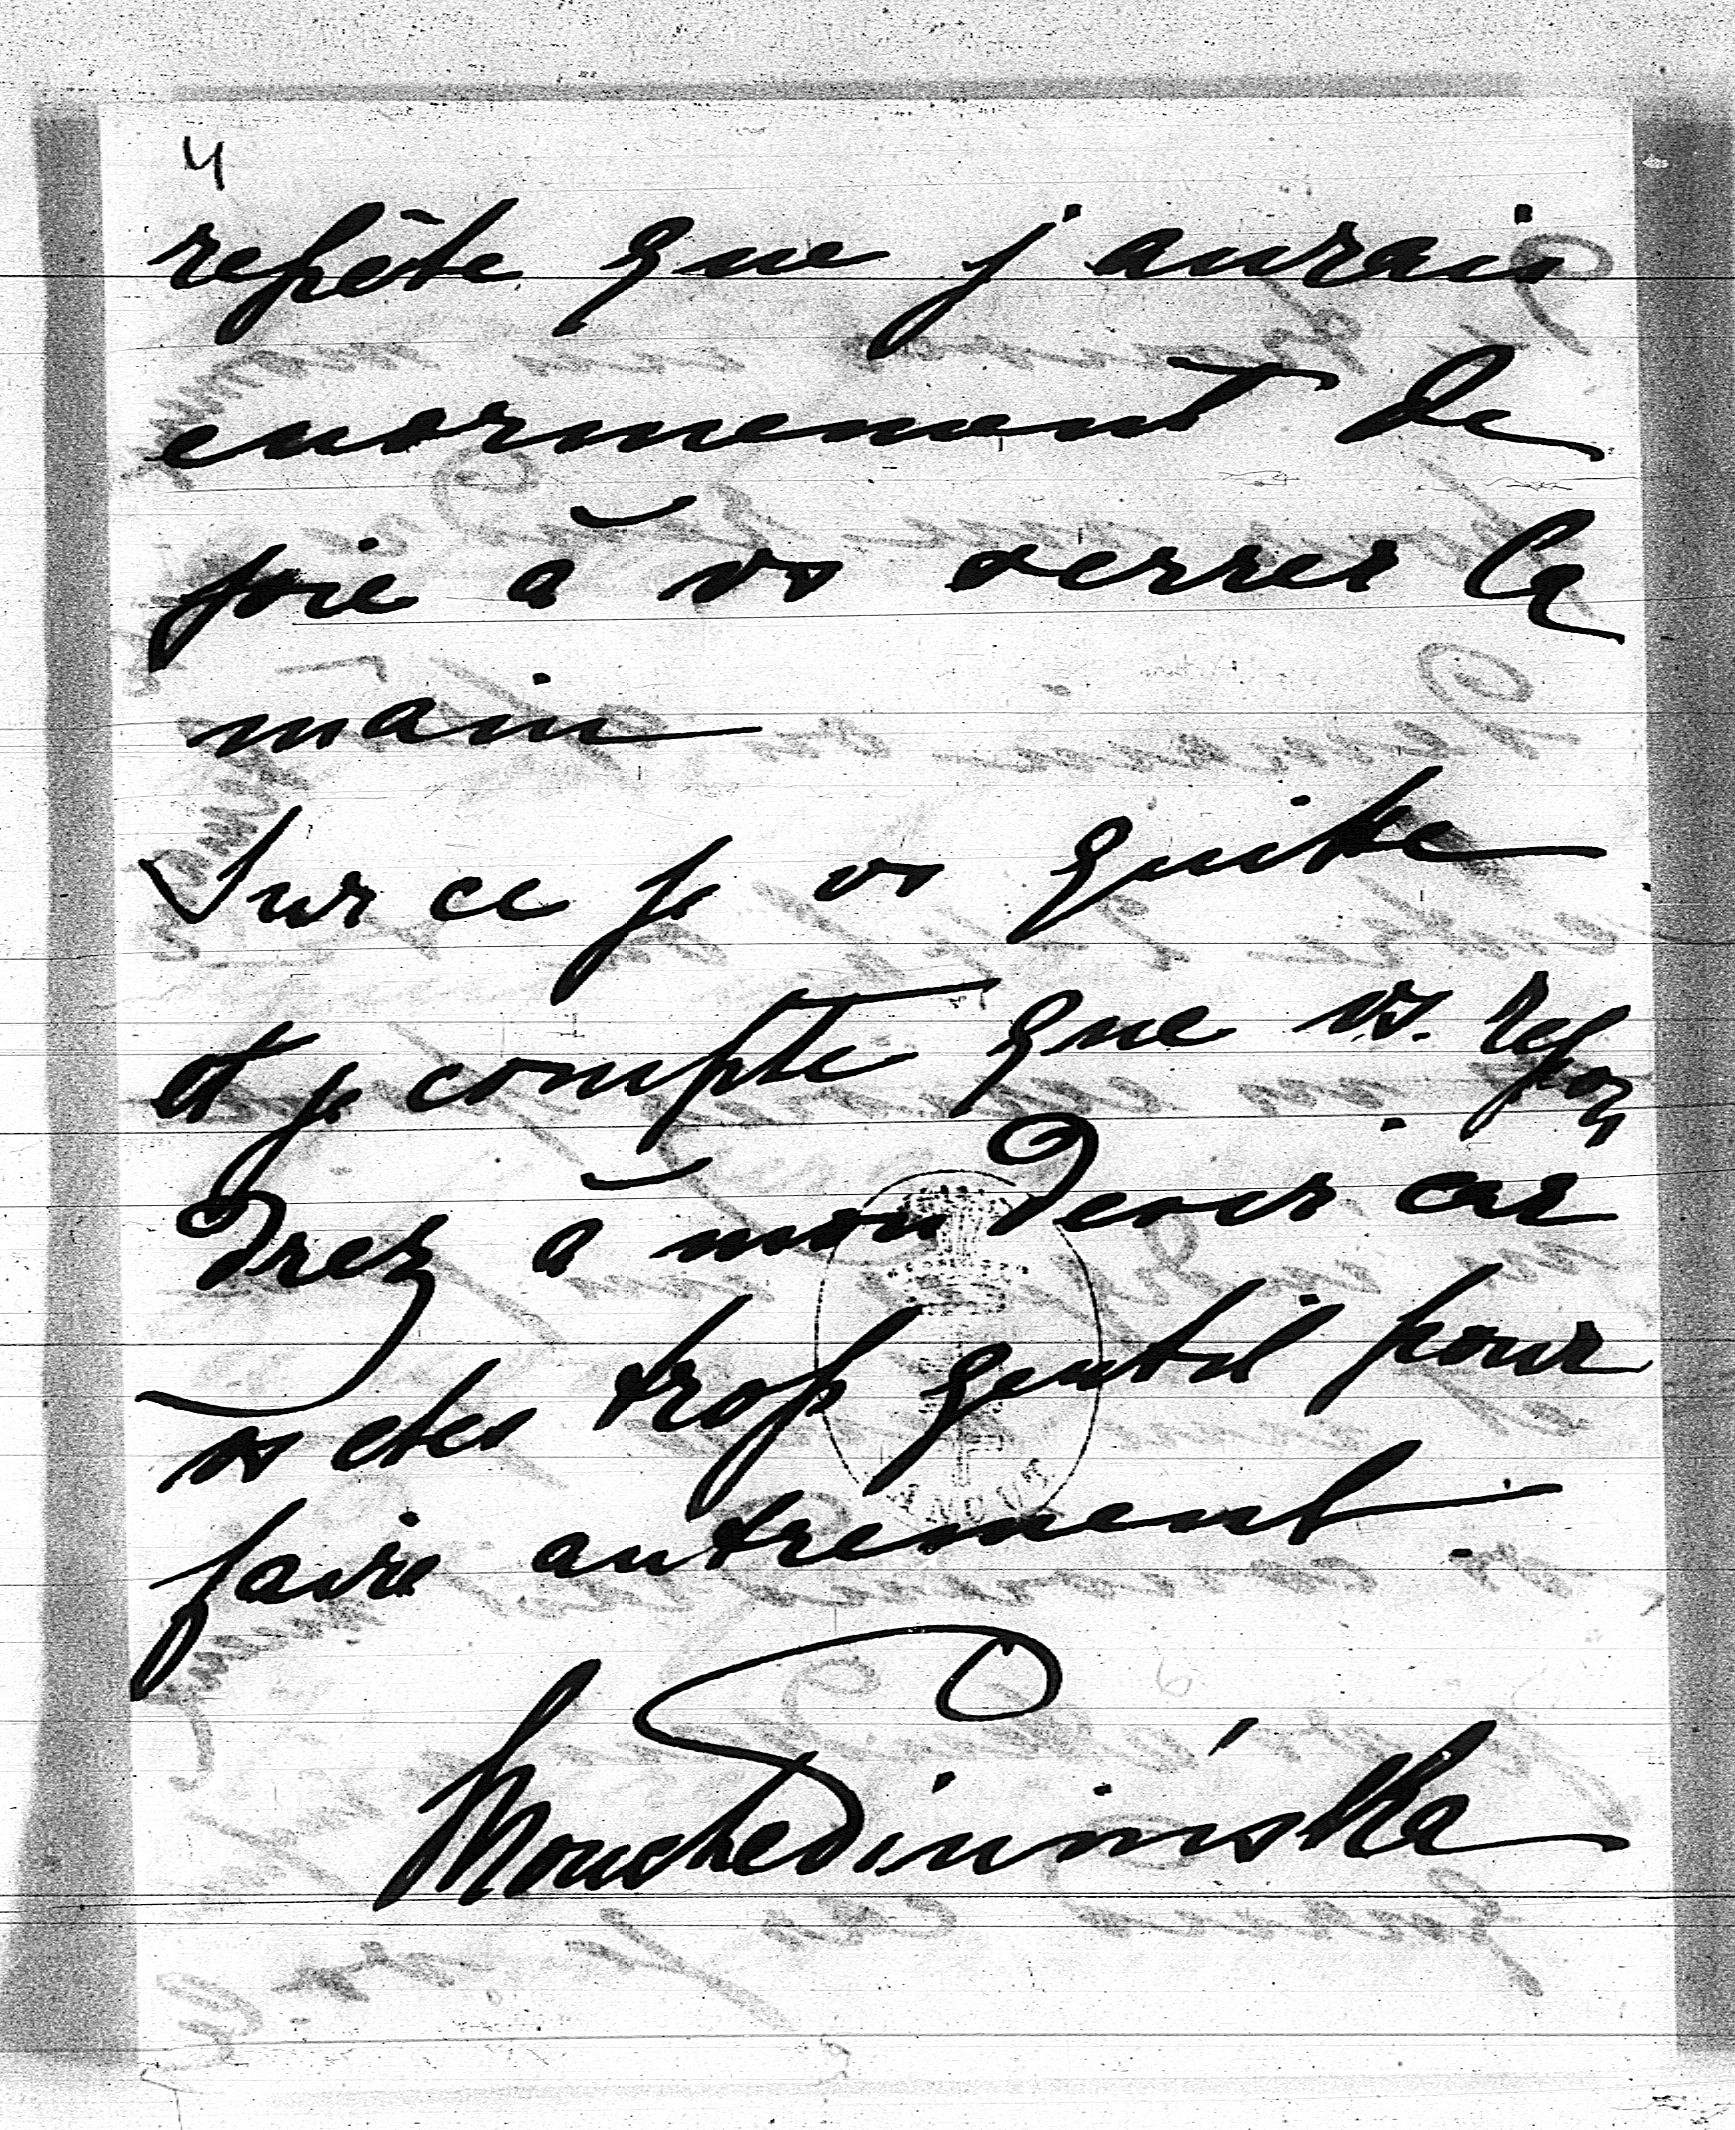 4
repète que j'aurais
enormement de
joie à vs serrer la
main
Sur ce je vs quitte
et je compte que vs. repon
drez à mon desir car
vs etes trop gentil pour
faire autrement.